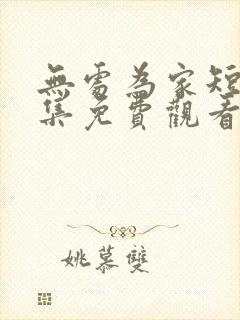 無處為家短
集免費觀看
姚慕雙